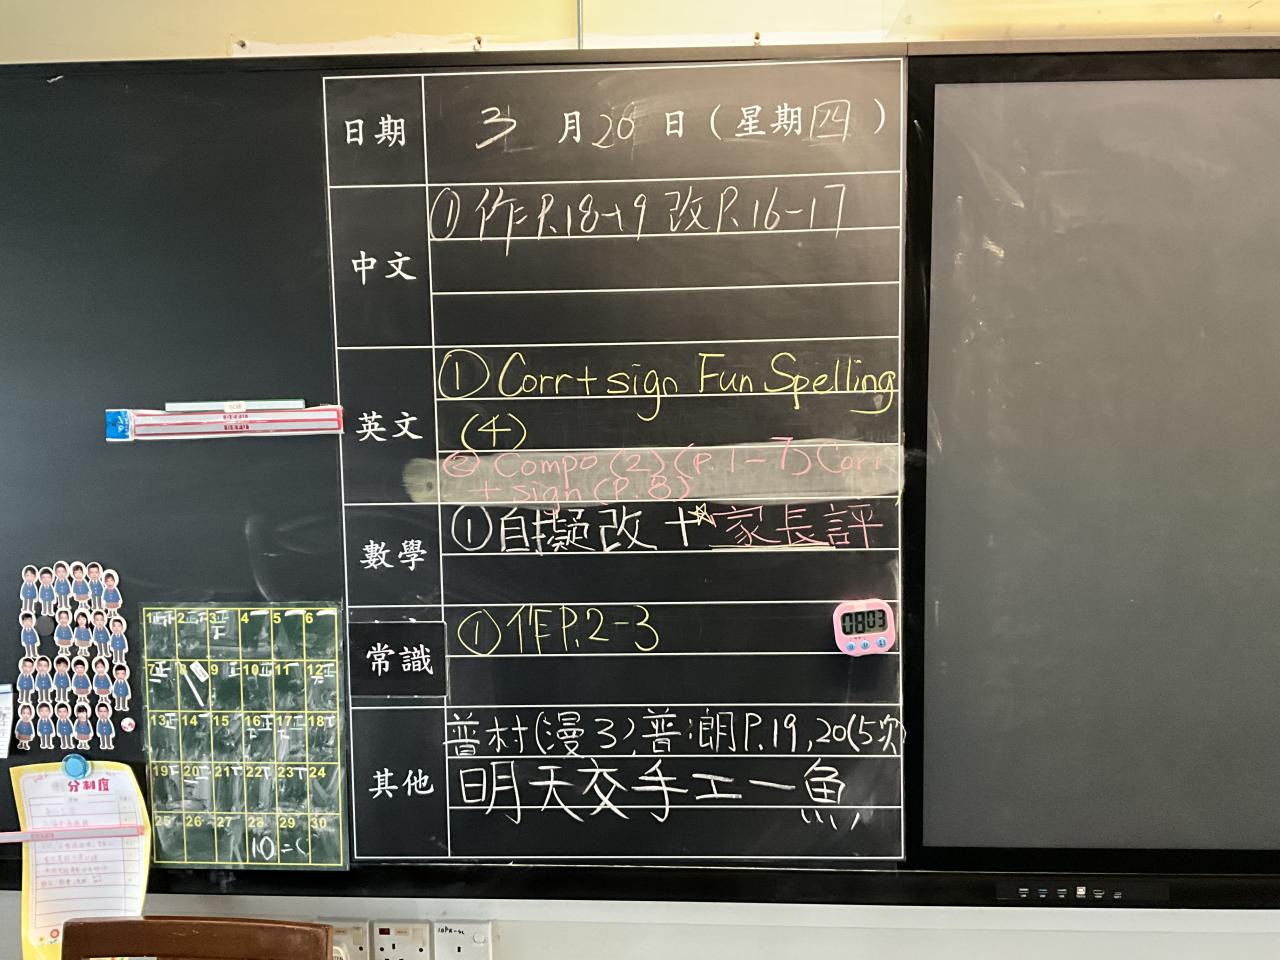 日期 3月20日(星期四)
中文 ①作P.18-19 改P.16-17
英文 ①Corr+sign Fun Spelling
(4)
②Compo(2)(P.1-7)Corr
+sign(P.8)
數學 ①自擬改+☆家長評
常識 ①作P.2-3
08:03
其他 普村(漫3),普朗P.19,20(5次)
明天交手工一魚
1 2 3 4 5 6
7 8 9 10 11 12
13 14 15 16 17 18
19 20 21 22 23 24
25 26 27 28 29 30
10=(
分制度